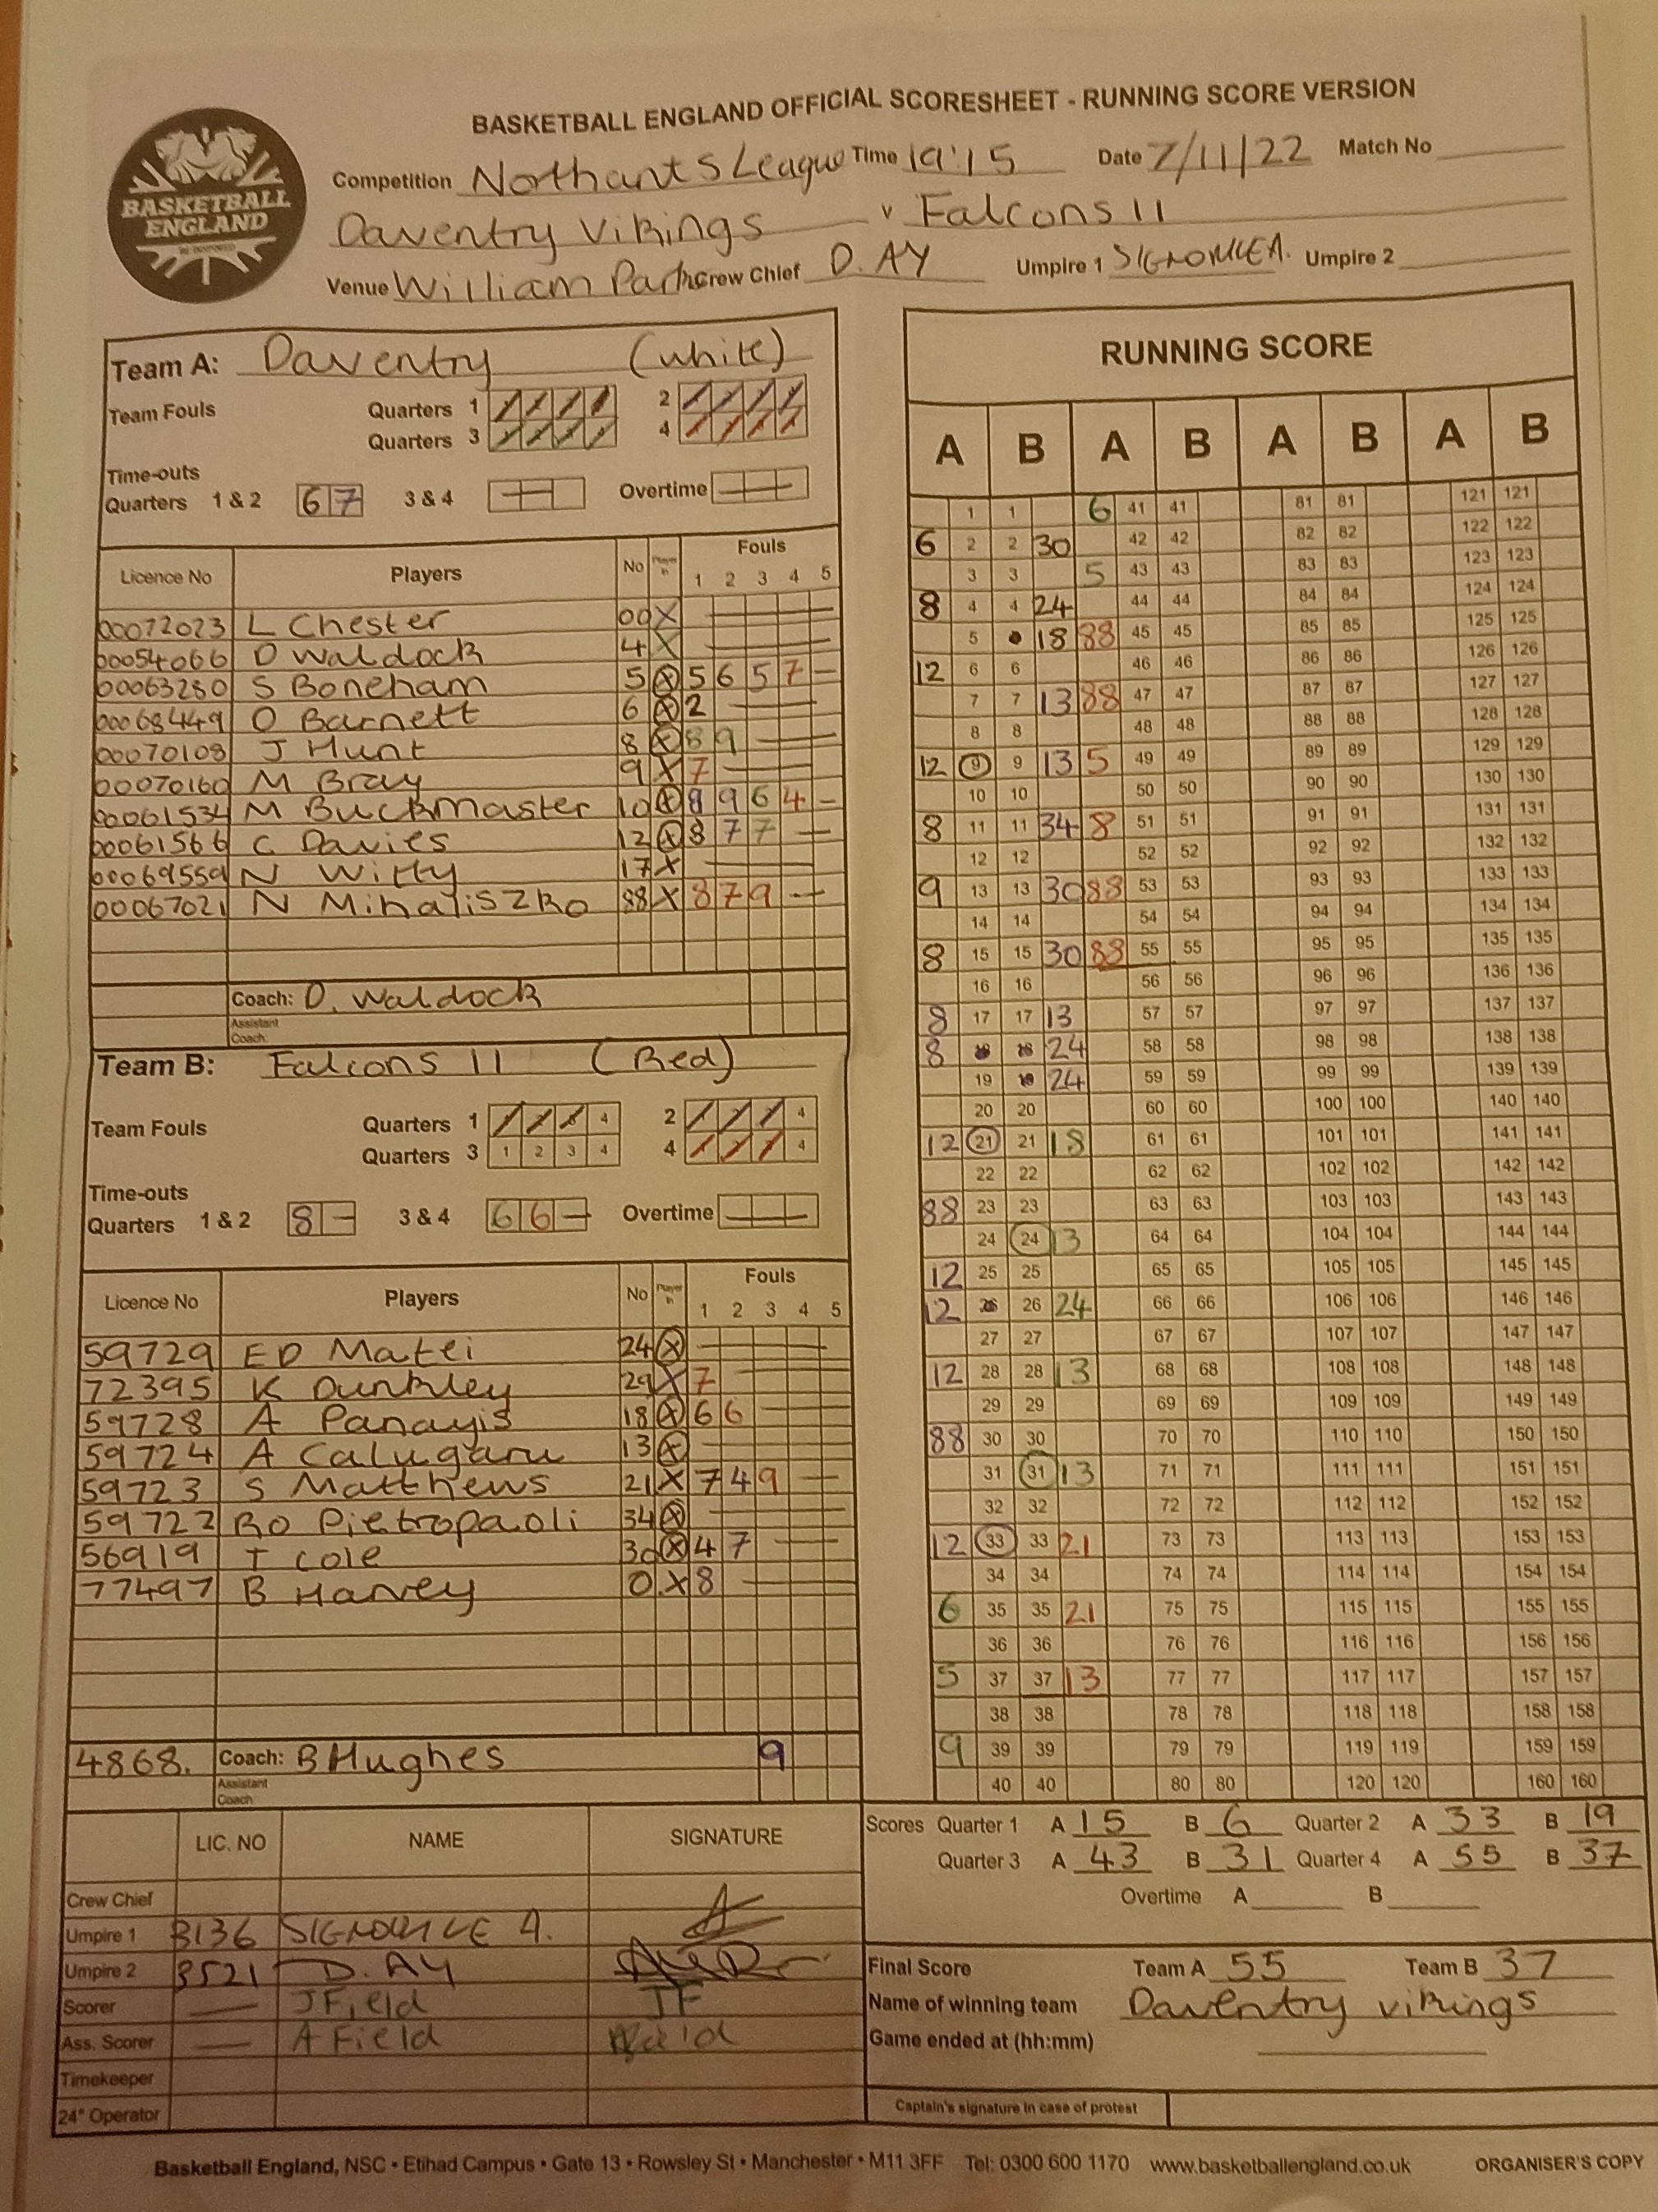 BASKETBALL ENGLAND OFFICIAL SCORESHEET - RUNNING SCORE VERSION
BASKETBALL
ENGLAND
Competition Northants League Time 19:15 Date 7/11/22 Match No
Daventry Vikings v Falcons II
Venue William Park Crew Chief D. AY Umpire 1 Umpire 2
Team A: Daventry (white)
Team Fouls Quarters 1 2
Quarters 3 4
Time-outs
Quarters 1 & 2 6 7 3 & 4 Overtime
Licence No Players No Player in Fouls
1 2 3 4 5
00072023 L Chester 00 X
00054066 D Waldock 4 X
00063280 S Boneham 5 X 5 6 5 7
00068449 O Barnett 6 X 2
00070108 J Hunt 8 X 8 9
00070160 M Bray 9 X 7
00061534 M Buckmaster 10 X 8 9 6 4
00061566 C Davies 12 X 8 7 7
00069559 N Witty 17 X
00067021 N Mihaliszko 88 X 8 7 9
Coach: D. Waldock
Assistant
Coach:
Team B: Falcons II (Red)
Team Fouls Quarters 1 4 2 4
Quarters 3 1 2 3 4 4 4
Time-outs
Quarters 1 & 2 8 3 & 4 6 6 Overtime
Licence No Players No Player in Fouls
1 2 3 4 5
59729 ED Matei 24 X
72395 K Dunkley 29 X 7
59728 A Panayis 18 X 6 6
59724 A Calugaru 13 X
59723 S Matthews 21 X 7 4 9
59722 RO Pietropaoli 34 X
56919 T Cole 30 X 4 7
77497 B Harvey 0 X 8
4868. Coach: B Hughes 9
Assistant
Coach
LIC. NO NAME SIGNATURE
Crew Chief
Umpire 1 3136
Umpire 2 3521 D. AY
Scorer J Field JF
Ass. Scorer A Field
Timekeeper
24" Operator
RUNNING SCORE
A B A B A B A B
1 1 6 41 41 81 81 121 121
6 2 2 30 42 42 82 82 122 122
3 3 5 43 43 83 83 123 123
8 4 4 24 44 44 84 84 124 124
5 18 88 45 45 85 85 125 125
12 6 6 46 46 86 86 126 126
7 7 13 88 47 47 87 87 127 127
8 8 48 48 88 88 128 128
12 9 9 13 5 49 49 89 89 129 129
10 10 50 50 90 90 130 130
8 11 11 34 8 51 51 91 91 131 131
12 12 52 52 92 92 132 132
9 13 13 30 88 53 53 93 93 133 133
14 14 54 54 94 94 134 134
8 15 15 30 88 55 55 95 95 135 135
16 16 56 56 96 96 136 136
8 17 17 13 57 57 97 97 137 137
8 18 18 24 58 58 98 98 138 138
19 19 24 59 59 99 99 139 139
20 20 60 60 100 100 140 140
12 21 21 18 61 61 101 101 141 141
22 22 62 62 102 102 142 142
88 23 23 63 63 103 103 143 143
24 24 13 64 64 104 104 144 144
12 25 25 65 65 105 105 145 145
12 26 26 24 66 66 106 106 146 146
27 27 67 67 107 107 147 147
12 28 28 13 68 68 108 108 148 148
29 29 69 69 109 109 149 149
88 30 30 70 70 110 110 150 150
31 31 13 71 71 111 111 151 151
32 32 72 72 112 112 152 152
12 33 33 21 73 73 113 113 153 153
34 34 74 74 114 114 154 154
6 35 35 21 75 75 115 115 155 155
36 36 76 76 116 116 156 156
5 37 37 13 77 77 117 117 157 157
38 38 78 78 118 118 158 158
9 39 39 79 79 119 119 159 159
40 40 80 80 120 120 160 160
Scores Quarter 1 A 15 B 6 Quarter 2 A 33 B 19
Quarter 3 A 43 B 31 Quarter 4 A 55 B 37
Overtime A B
Final Score Team A 55 Team B 37
Name of winning team Daventry Vikings
Game ended at (hh:mm)
Captain's signature in case of protest
Basketball England, NSC • Etihad Campus • Gate 13 • Rowsley St • Manchester • M11 3FF Tel: 0300 600 1170 www.basketballengland.co.uk ORGANISER'S COPY